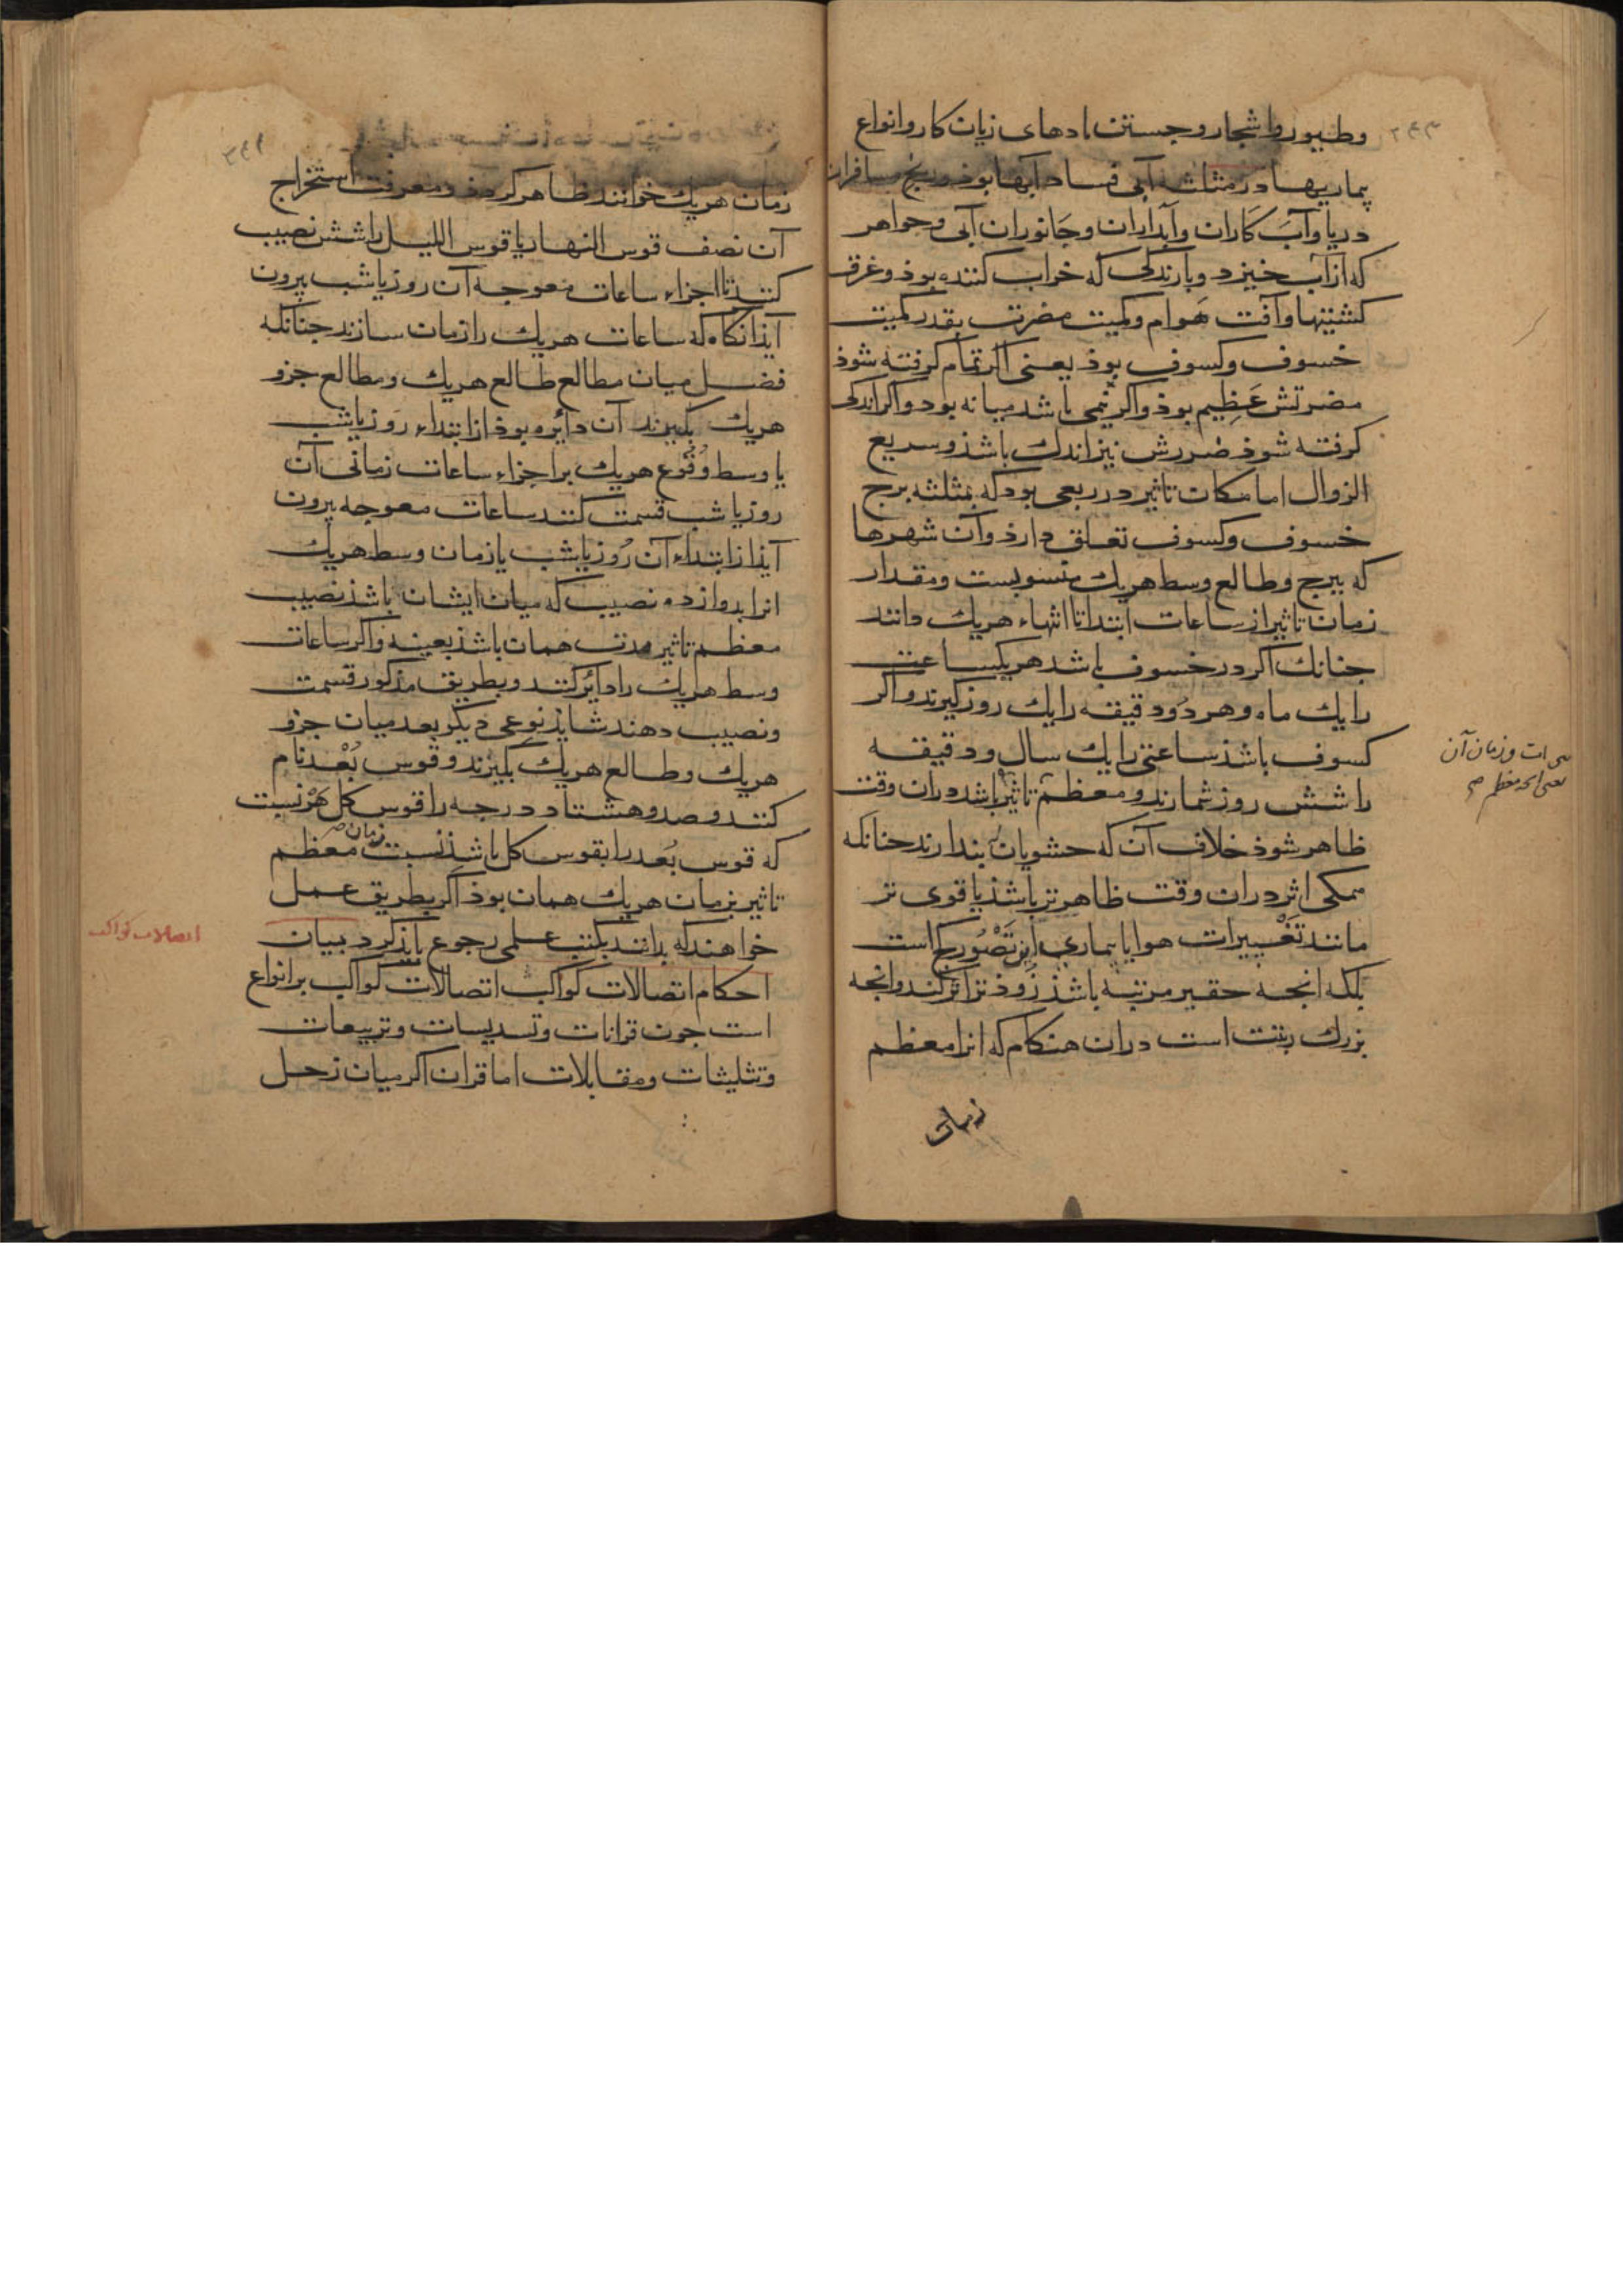 وطیور واشجار وجستن بادهای زیان کار وانواع
بیماریها در مثلثه آبی فساد آبها بوذ ورنج مسافران
دریا وآب کاران وآبداران وجانوران آبی وجواهر
که از آب خیزد وبارندکی که خراب کننده بوذ وغرق
کشتیها وآفت هوام وکمیت مضرت بقدر کمیت
خسوف وکسوف بوذ یعنی اکر تمام کرفته شوذ
مضرتش عظیم بوذ واکر نیمی باشد میانه بود واکر اندکی
کرفته شوذ ضررش نیز اندك باشذ وسریع
الزوال اما مکان تاثیر در ربعی بود که بمثلثه برج
خسوف وکسوف تعلق دارذ وآن شهرها
که ببرج وطالع وسط هریك منسوبست ومقدار
زمان تاثیر از ساعات ابتدا تا انتهاء هریك دانند
جنانك اکر در خسوف باشد هریکساعتی
را یك ماه وهر دو دقیقه را یك روز کیرند واکر
کسوف باشذ ساعتی را یك سال ودقیقه
را شش روز شمارند ومعظم تاثیر باشد دران وقت
ظاهر شوذ خلاف آن که حشویان بندارند جنانکه
ممکی اثر دران وقت ظاهر تر باشذ یا قوی تر
مانند تغییرات هوا یا بیماری این تصور کج است
بلکه انجه حقیر مرتبه باشذ زوذ تر اثر کند وانجه
بزرك رتبت است دران هنکام که انرا معظم
زمان
وزمان آن
زمان هریك خوانند ظاهر کردذ ودر معرفت استخراج
آن نصف قوس النهار یا قوس اللیل را شش نصیب
کنند تا اجزاء ساعات معوجه آن روز یا شب بیرون
آیذ انکاه که ساعات هریك را زمان سازند جنانکه
فضل میان مطالع طالع هریك ومطالع جزو
هریك بکیرند آن دائره بوذ از ابتداء روز یا شب
یا وسط وقوع هریك بر اجزاء ساعات زمانی آن
روز یا شب قسمت کنند ساعات معوجه بیرون
آیذ از ابتداء آن روز یا شب یا زمان وسط هریك
انرا بدوازده نصیب که میان ایشان باشذ نصیب
معظم تاثیر مدت همان باشذ بعینه واکر ساعات
وسط هریك را دائر کنند وبطریق مذکور قسمت
ونصیب دهند شایذ نوعی دیکر بعد میان جزو
هریك وطالع هریك بکیرند وقوس بعد نام
کنند وصد وهشتاد درجه را قوس کل هر نسبت
که قوس بعد را بقوس کل باشذ نسبت زمان معظم
تاثیر بزمان هریك همان بوذ اکر بطریق عمل
خواهند که بدانند بکتب علمی رجوع بایذ کرد بیان
اتصالات کواکب
احکام اتصالات کواکب اتصالات کواکب بر انواع
است جون قرانات وتسدیسات وتربیعات
وتثلیثات ومقابلات اما قران اکر میان زحل